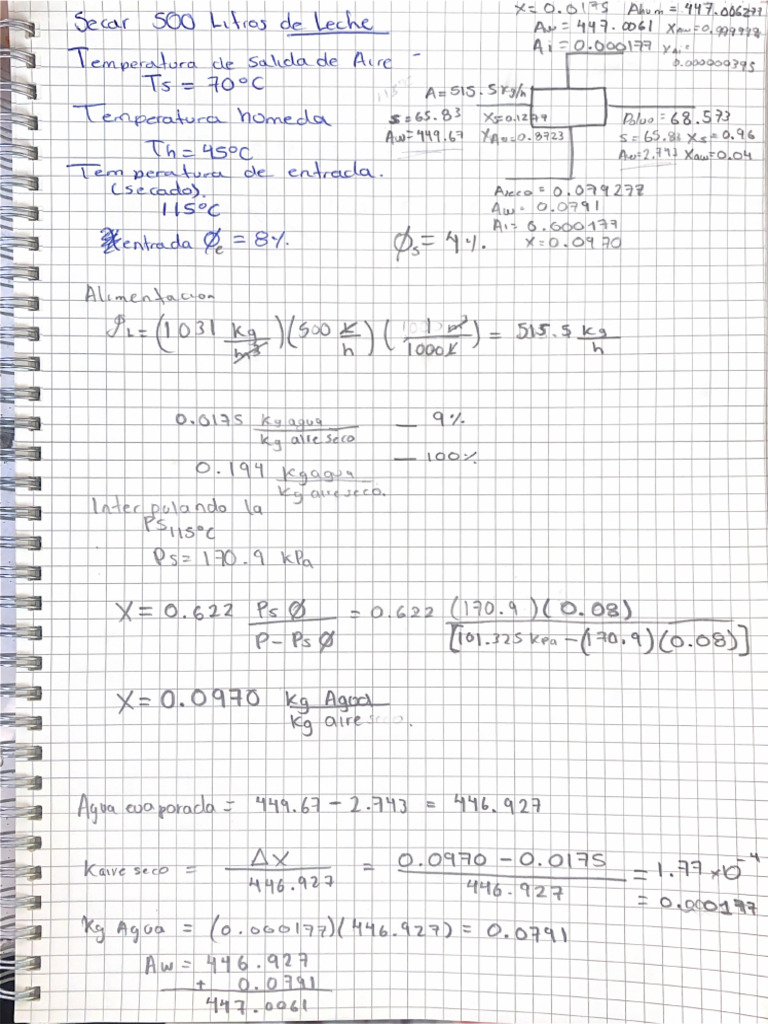 Secar 500 Litros de Leche
Temperatura de salida de Aire -
Ts = 70°C
Temperatura homeda
Th = 45°C
Temperatura de entrada.
(secado).
115°C
entrada Øe = 8%.
Øs = 4%.
X = 0.0175 Ahum = 447.006277
Aw = 447.0061 Xaw = 0.999998
Ai = 0.000177 XAi =
0.000000395
A = 515.5 kg/h
s = 65.83 Xs = 0.1277
Aw = 449.67 XAw = 0.8723
Polvo = 68.573
s = 65.83 Xs = 0.96
Aw = 2.743 Xaw = 0.04
Aseco = 0.079277
Aw = 0.0791
Ai = 0.000177
X = 0.0970
Alimentacion
ρL = (1031 kg/m³)(500 L/h)(1 m³/1000 L) = 515.5 kg/h
0.0175 kg agua/kg aire seco — 9%
0.194 kg agua/kg aire seco. — 100%
Interpolando la
Ps 115°C
Ps = 170.9 kPa
X = 0.622 Ps Ø/P - Ps Ø = 0.622 (170.9)(0.08)/[101.325 kPa - (170.9)(0.08)]
X = 0.0970 kg Agua/kg aire seco.
Agua evaporada = 449.67 - 2.743 = 446.927
Kaire seco = ΔX/446.927 = 0.0970 - 0.0175/446.927 = 1.77 x10⁻⁴
= 0.000177
Kg Agua = (0.000177)(446.927) = 0.0791
Aw = 446.927
+ 0.0791
447.0061